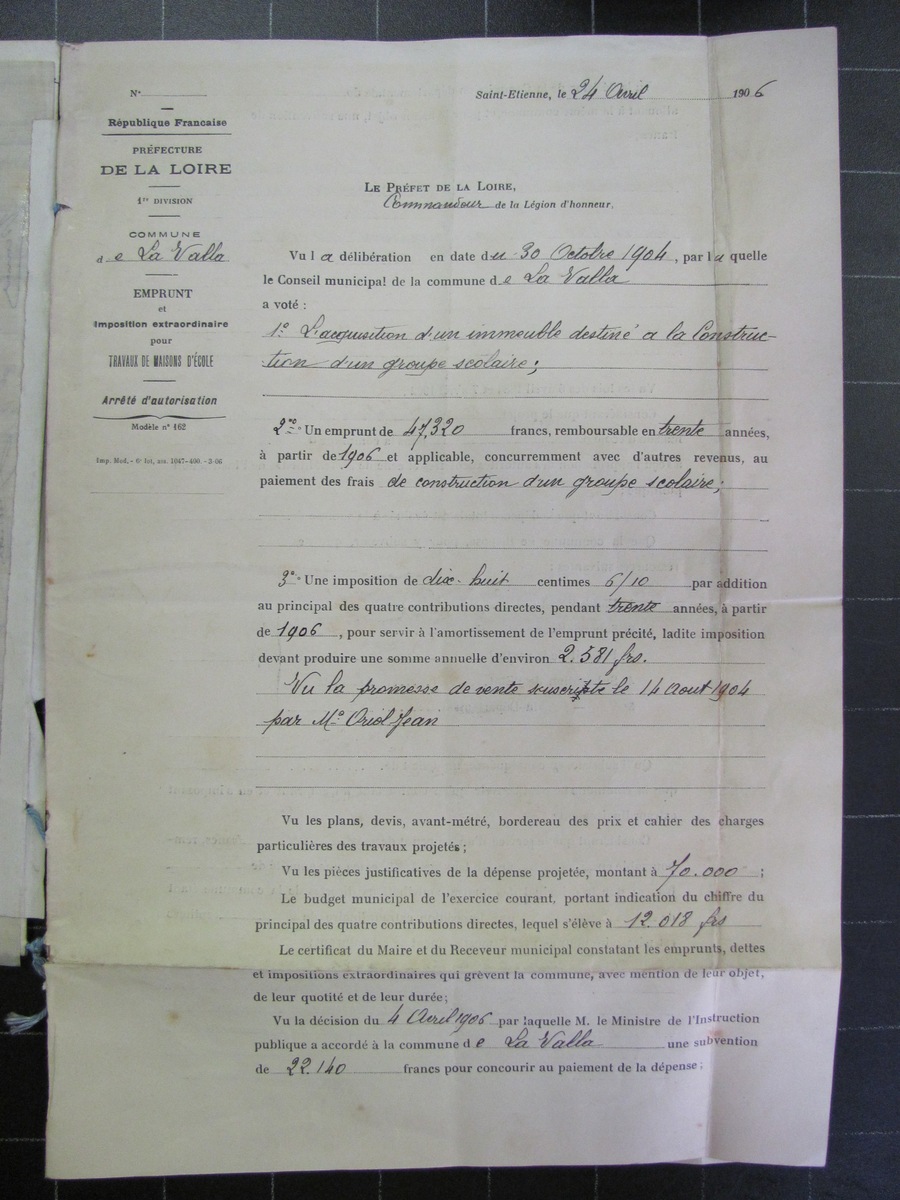 N°
République Francaise
PRÉFECTURE
DE LA LOIRE
1re DIVISION
COMMUNE
de La Valla
EMPRUNT
et
Imposition extraordinaire
pour
TRAVAUX DE MAISONS D'ÉCOLE
Arrêté d'autorisation
Modèle n° 162
Saint-Etienne, le 24 Avril 1906
LE PRÉFET DE LA LOIRE,
Commandeur de la Légion d'honneur,
Vu la délibération en date du 30 Octobre 1904, par laquelle
le Conseil municipal de la commune de La Valla
a voté :
1° L'acquisition d'un immeuble destiné a la Construc-
tion d'un groupe scolaire;
2° Un emprunt de 47,320 francs, remboursable en trente années,
à partir de 1906 et applicable, concurremment avec d'autres revenus, au
paiement des frais de construction d'un groupe scolaire;
3° Une imposition de dix-huit centimes 6/10 par addition
au principal des quatre contributions directes, pendant trente années, à partir
de 1906, pour servir à l'amortissement de l'emprunt précité, ladite imposition
devant produire une somme annuelle d'environ 2.581 frs.
Vu la promesse de vente le 14 Aout 1904
par Mr Oriol Jean
Vu les plans, devis, avant-métré, bordereau des prix et cahier des charges
particulières des travaux projetés;
Vu les pièces justificatives de la dépense projetée, montant à 70.000 ;
Le budget municipal de l'exercice courant, portant indication du chiffre du
principal des quatre contributions directes, lequel s'élève à 12.018 frs
Le certificat du Maire et du Receveur municipal constatant les emprunts, dettes
et impositions extraordinaires qui grèvent la commune, avec mention de leur objet,
de leur quotité et de leur durée;
Vu la décision du 4 Avril 1906 par laquelle M. le Ministre de l'Instruction
publique a accordé à la commune de La Valla une subvention
de 22.140 francs pour concourir au paiement de la dépense;